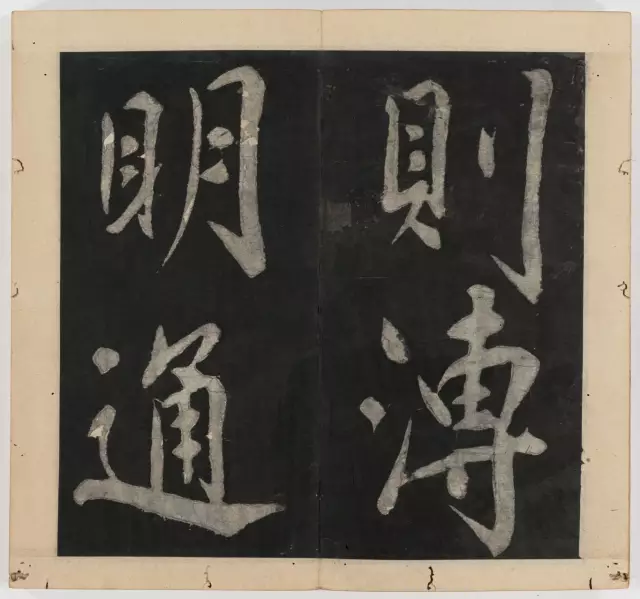 則溥
明通